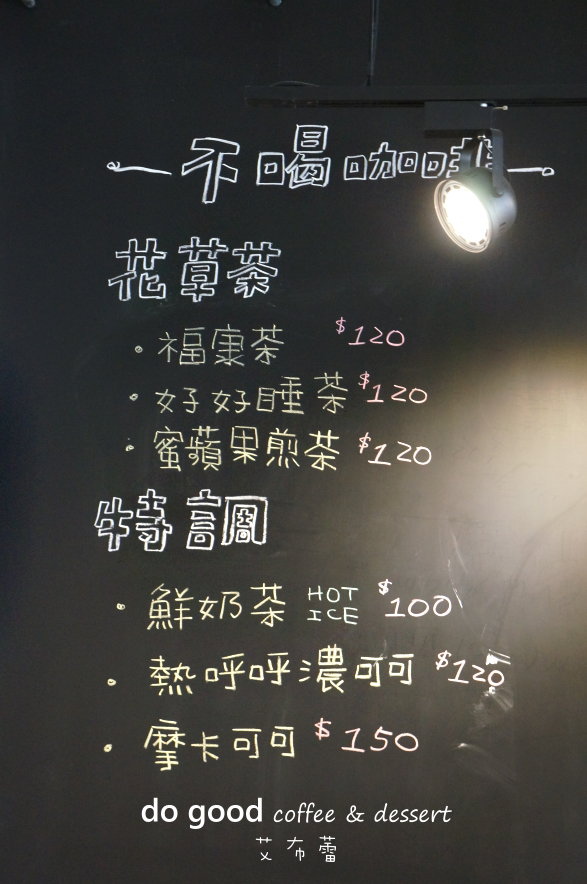 不喝咖啡
花草茶
福康茶 $120
好好睡茶 $120
蜜蘋果煎茶 $120
特調
鮮奶茶 HOT ICE $100
熱呼呼濃可可 $120
摩卡可可 $150
do good coffee & dessert
艾布蕾